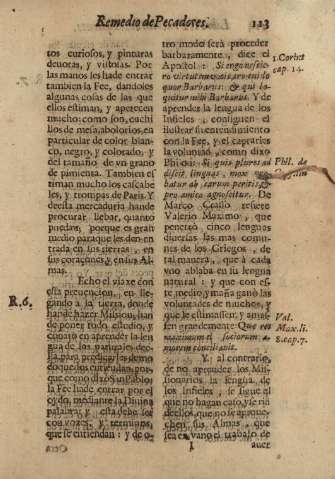 Remedio de Pecadores. 113
tos curiosos, y pinturas
deuotas, y vistosas. Por
las manos les hade entrar
tambien la Fee, dandoles
algunas cosas de las que
ellos estiman, y apetecen
mucho: como son, cuchi
llos de mesa, abolorios, en
particular de color blan-
co, negro, y colorado, y
del tamaño de vn grano
de pimienta. Tambien es
timan mucho los cascabe
les, y trompas de Paris. Y
desta mercaduria hande
procurar llebar, quanto
puedan, porque es gran
medio para que les den en
trada en sus tierras, en
sus coraçones, y en sus Al-
mas.
Echo el viaxe con
esta preuencion, en lle-
gando à la tierra, donde
hande hazer Mission, han
de poner todo estudio, y
cuidado en aprender la len
gua de los naturales de-
lla para predicarles, me-
que como dixo San Pablo:
la Fee hade entrar por el
oydo, mediante la Diuina
palabra, y esta debe ser
con vozes, y terminos,
que se entiendan: y de o-
otra
tro modo serà proceder
barbaramente, dice el
Apostol: Si ergo nesciero
virtutem vocis, ero ei, lo
quor Barbarus: & qui lo-
quitur mihi Barbarus. Y de
aprender la lengua de los
Infieles, consiguen el
ilustrar su entendimiento
con la Fee, y el captarles
la voluntad, como dixo
Philon: Si quis plures
discit linguas, mox
batur ab earum peritis,
De
Marco Crasso refiere
Valerio Maximo, que
penetrò cinco lenguas
diuersas las mas comu-
nes de los Griegos, de
tal manera, que à cada
vno ablaba en su lengua
natural: y que con es-
te medio, y maña ganò las
voluntades de muchos, y
que le estimassen, y amas-
sen grandemente
maximum
amorem conciliauit.
Y, al contrario,
de no aprender los Mis-
sionarios la lengua de
los Infieles, se sigue el
que no hagan caso,
dellos, que no se aproue-
chen sus Almas, que
sea en vano el trabajo de
I auer
1. Corint
cap. 14.
Phil. de
R. 6.
Val.
Max. li.
8. cap. 7.